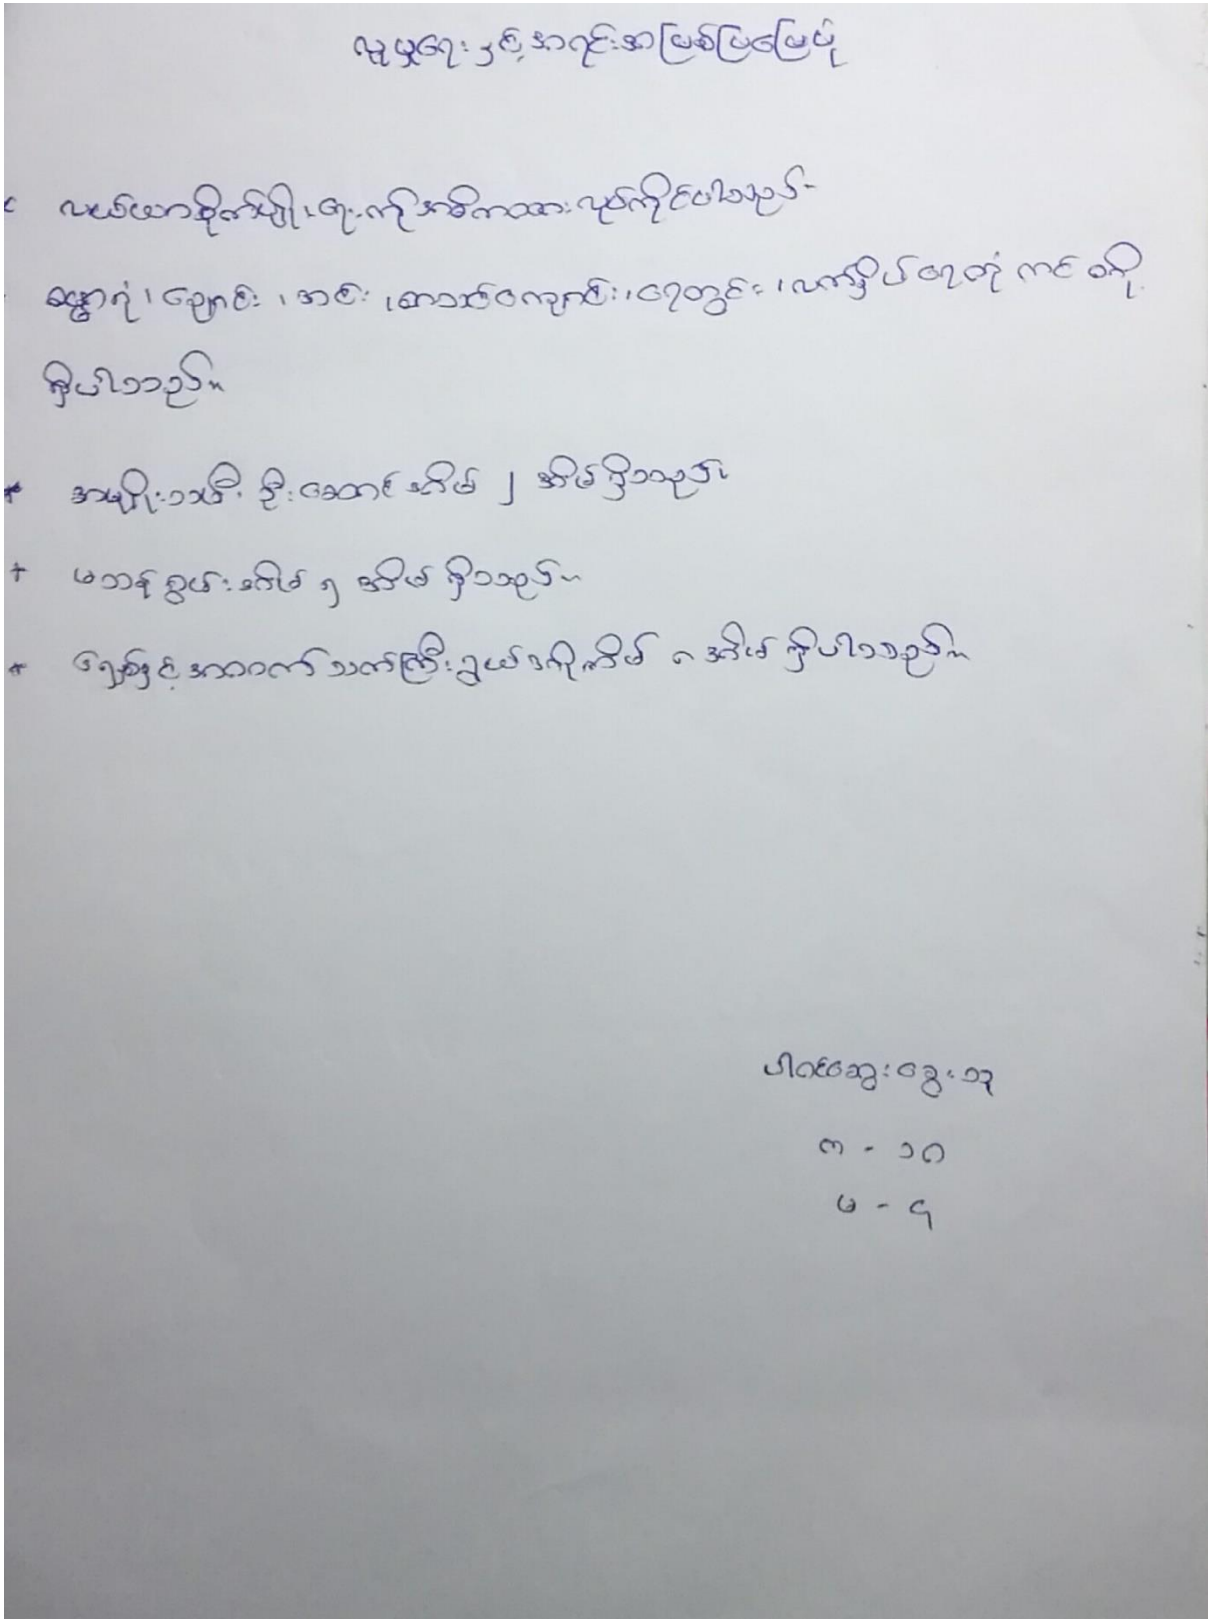 လူမှုရေးနှင့်အရင်းအမြစ်ပြမြေပုံ
* လယ်ယာစိုက်ပျိုးရေးကိုအဓိကထားလုပ်ကိုင်ပါသည်။
ဓမ္မာရုံ၊ချောင်း၊အင်း၊စာသင်ကျောင်း၊ရေတွင်း၊လက်နှိပ်ရေတုံကင်စတို့
ရှိပါသည်။
* အမျိုးသမီးဦးဆောင်အိမ် ၂ အိမ်ရှိသည်။
+ မသန်စွမ်းအိမ် ၅ အိမ်ရှိသည်။
* ခြေနှင့်သက်ကြီးရွယ်အိုအိမ် ၈ အိမ်ရှိပါသည်။
ပါဝင်ဆွေးနွေးသူ
ကျ - ၁၀
မ - ၄